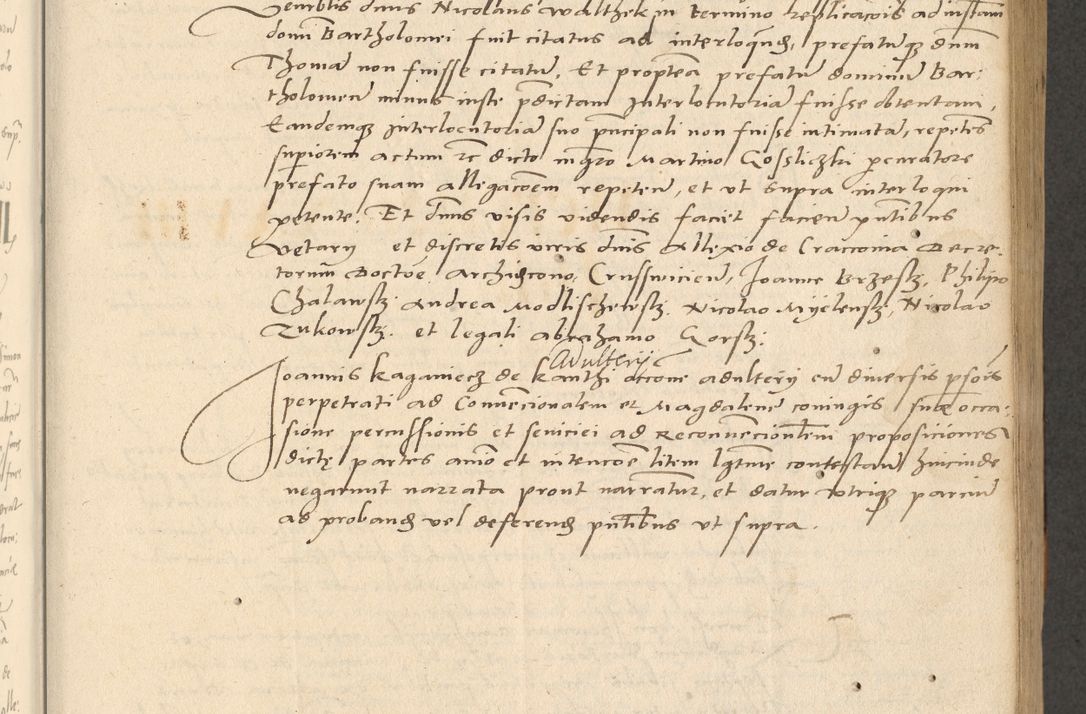 dnus Nicolaus Walthek in termino replicacois ad instam
domi Bartholomei fuit citatus ad interloquend, prefatuq dnm
Thoma non fuisse citatu, Et proptea prefatu dominu Bar:
tholomeu minus iuste pdictam Interlocutoria fuisse obtentam,
Eandemq interlocutoria suo pncipali non fuisse intimata, repetes
supiorem actum rc dicto mgro Martino Gosliczki pcuratore
prefato suam allegacoem repeten, et ut supra interloqui
petente. Et dnus visis videndis faciet facien pntibus
Vetary et discretis viris dnis Allexio de Craccovia Decre:
torum Doctoe, Archidcono Crusswicien, Joanne Brzesky, Philipo
Chalawsky Andrea Modlischewsky. Nicolao Myelensky, Nicolao
Zukowsky. et legali abrahamo Gorsky.
Adulterij
Joannis kaganiecz de kanthi accone adultery cu diversis psois
perpetrati ad Convencionalem et Magdalene coniugis sue occa:
sione percussionis et seviciei ad Reconvencionlem proposiciones
dictę partes animo et intencoe litem lgtime contestani hincinde
negarunt narrata prout narrantur, et datur utriq parciu
ad proband vel deferend pntibus ut supra.